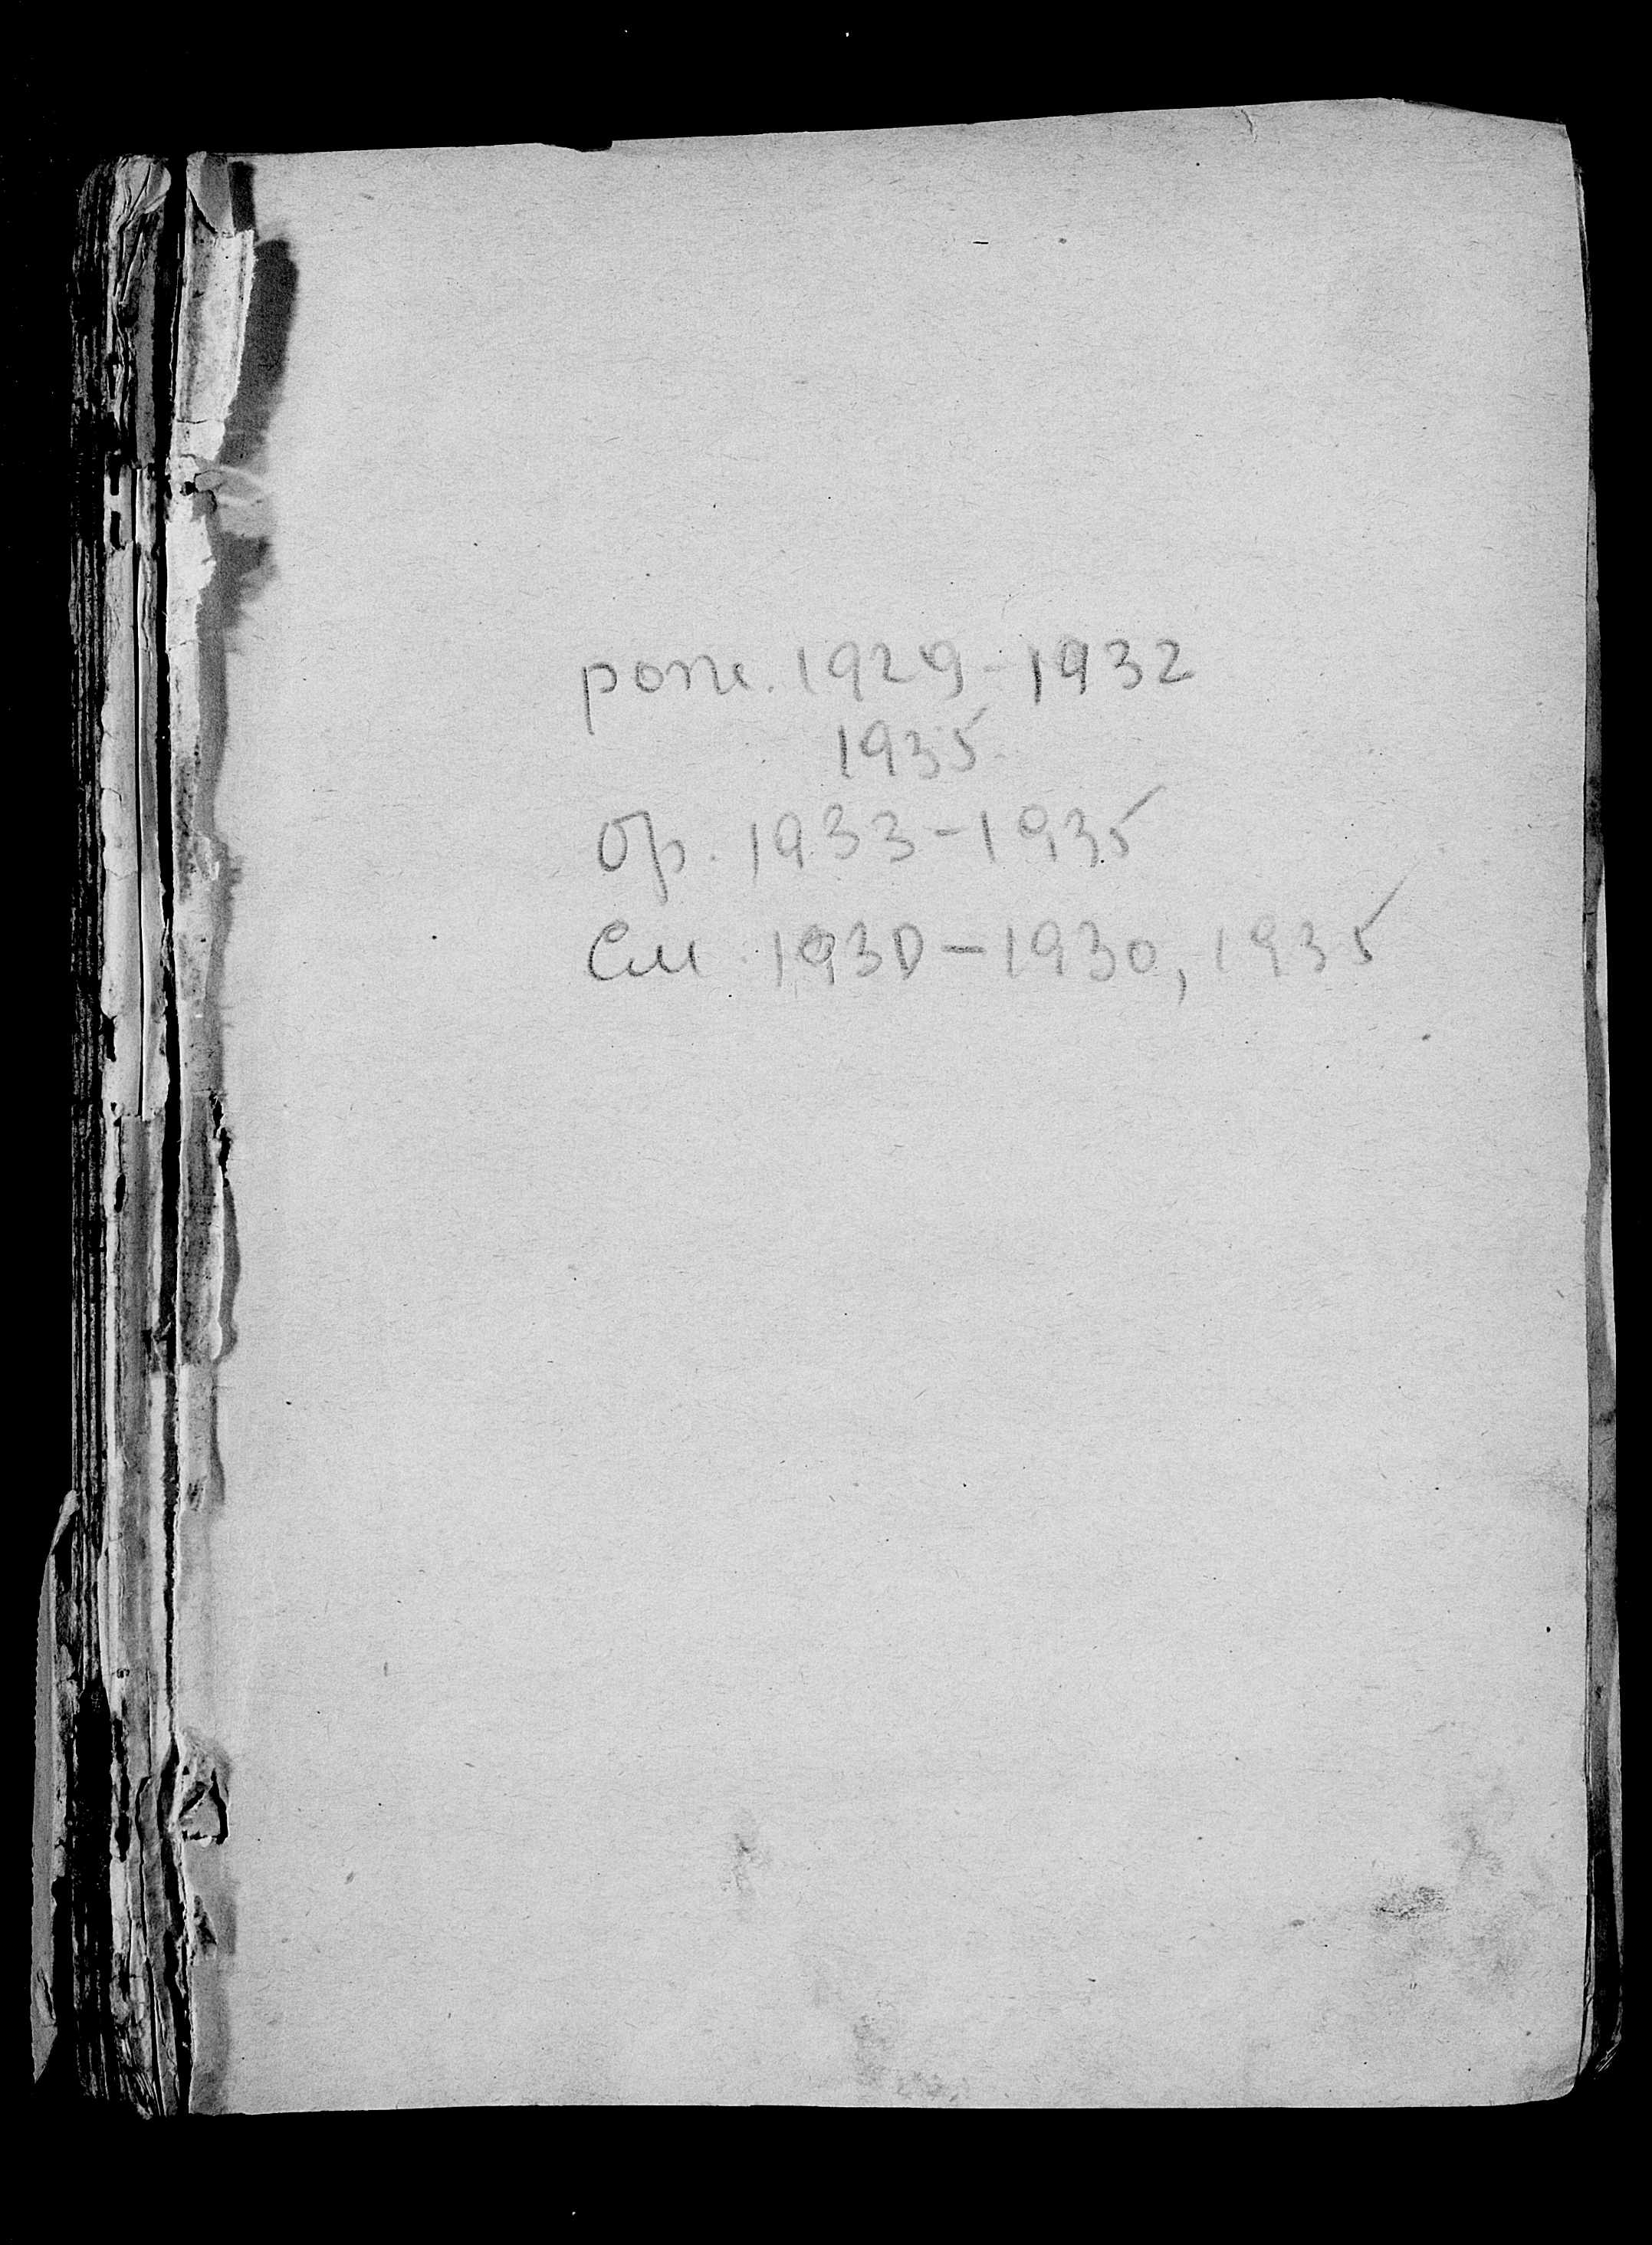 рож. 1929-1932
1935
бр. 1933-1935
См. 1930-1930, 1935